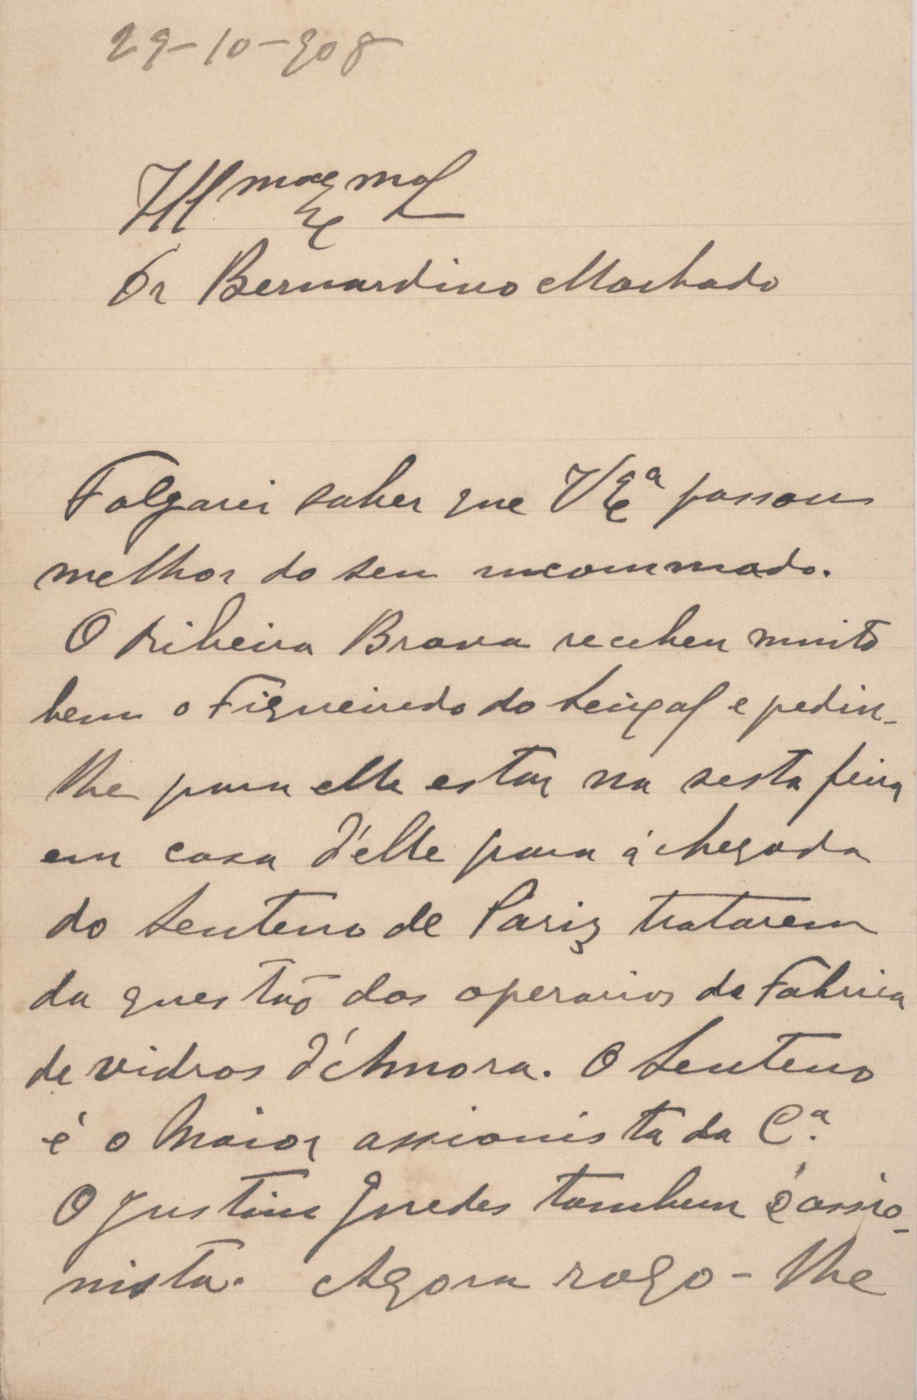 29-10-908
Illmo Exmo
Dr Bernardino Machado
Folgarei saber que VExª passou
melhor do seu incommodo.
O Ribeira Brava recebeu muito
bem o Figueiredo do Seixal e pedin-
lhe para elle estar na sesta feira
em casa d'elle para á chegada
do Senteno de Pariz tratarem
da questão dos operarios da Fabrica
de vidros d'Amora. O Senteno
é o Maior assionista da Cª.
O Justino Guedes tambem é assio-
nista. Agora rogo-lhe